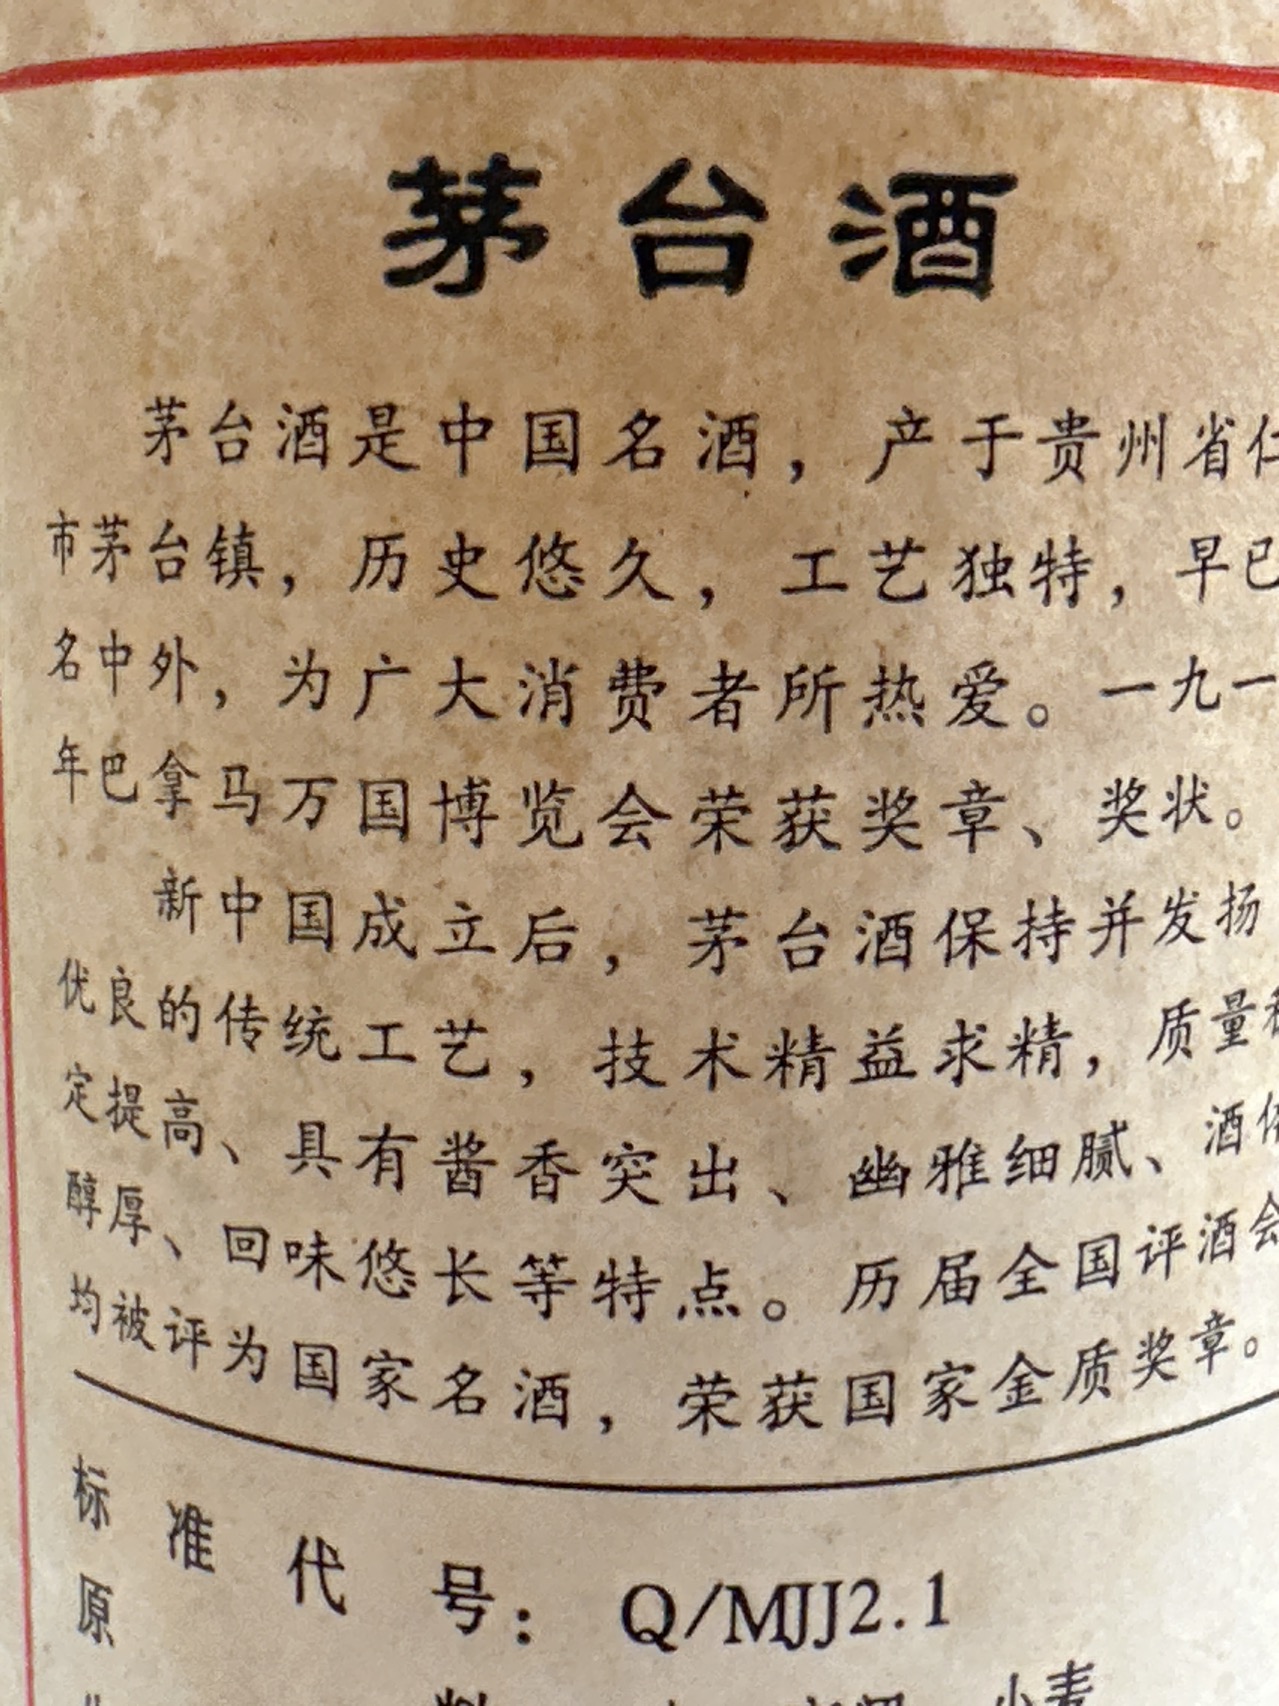 茅台酒
茅台酒是中国名酒，产于贵州省仁
市茅台镇，历史悠久，工艺独特，早已
名中外，为广大消费者所热爱。一九一
年巴拿马万国博览会荣获奖章、奖状。
新中国成立后，茅台酒保持并发扬
优良的传统工艺，技术精益求精，质量稳
定提高、具有酱香突出、幽雅细腻、酒体
醇厚、回味悠长等特点。历届全国评酒会
均被评为国家名酒，荣获国家金质奖章。
标准代号：Q/MJJ2.1
原料 小麦